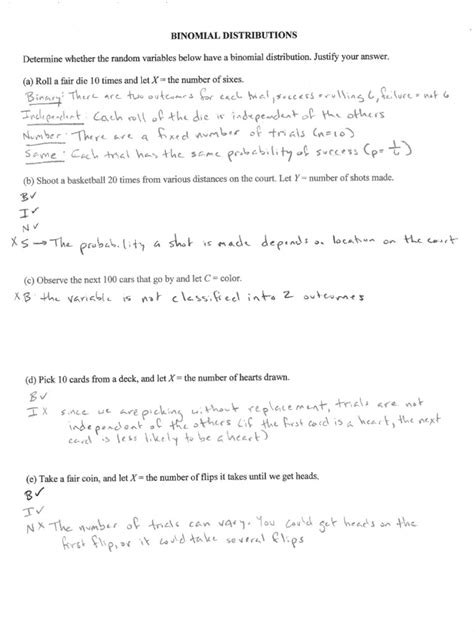 BINOMIAL DISTRIBUTIONS
Determine whether the random variables below have a binomial distribution. Justify your answer.
(a) Roll a fair die 10 times and let X = the number of sixes.
Binary: There are two outcomes for each trial, success = rolling 6, failure = not 6
Independent: Each roll of the die is independent of the others
Number: There are a fixed number of trials (n=10)
Same: Each trial has the same probability of success (p = 1/6)
(b) Shoot a basketball 20 times from various distances on the court. Let Y = number of shots made.
B✓
I✓
N✓
X S → The probability a shot is made depends on location on the court
(c) Observe the next 100 cars that go by and let C = color.
X B: the variable is not classified into 2 outcomes
(d) Pick 10 cards from a deck, and let X = the number of hearts drawn.
B✓
I X since we are picking without replacement, trials are not
independent of the others (if the first card is a heart, the next
card is less likely to be a heart)
(e) Take a fair coin, and let X = the number of flips it takes until we get heads.
B✓
I✓
N X The number of trials can vary. You could get heads on the
first flip, or it could take several flips